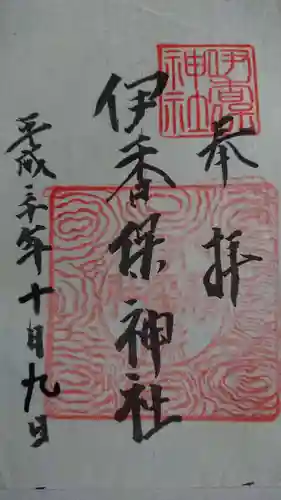 奉拝
伊香保神社
伊香保神社
平成三十年十月九日